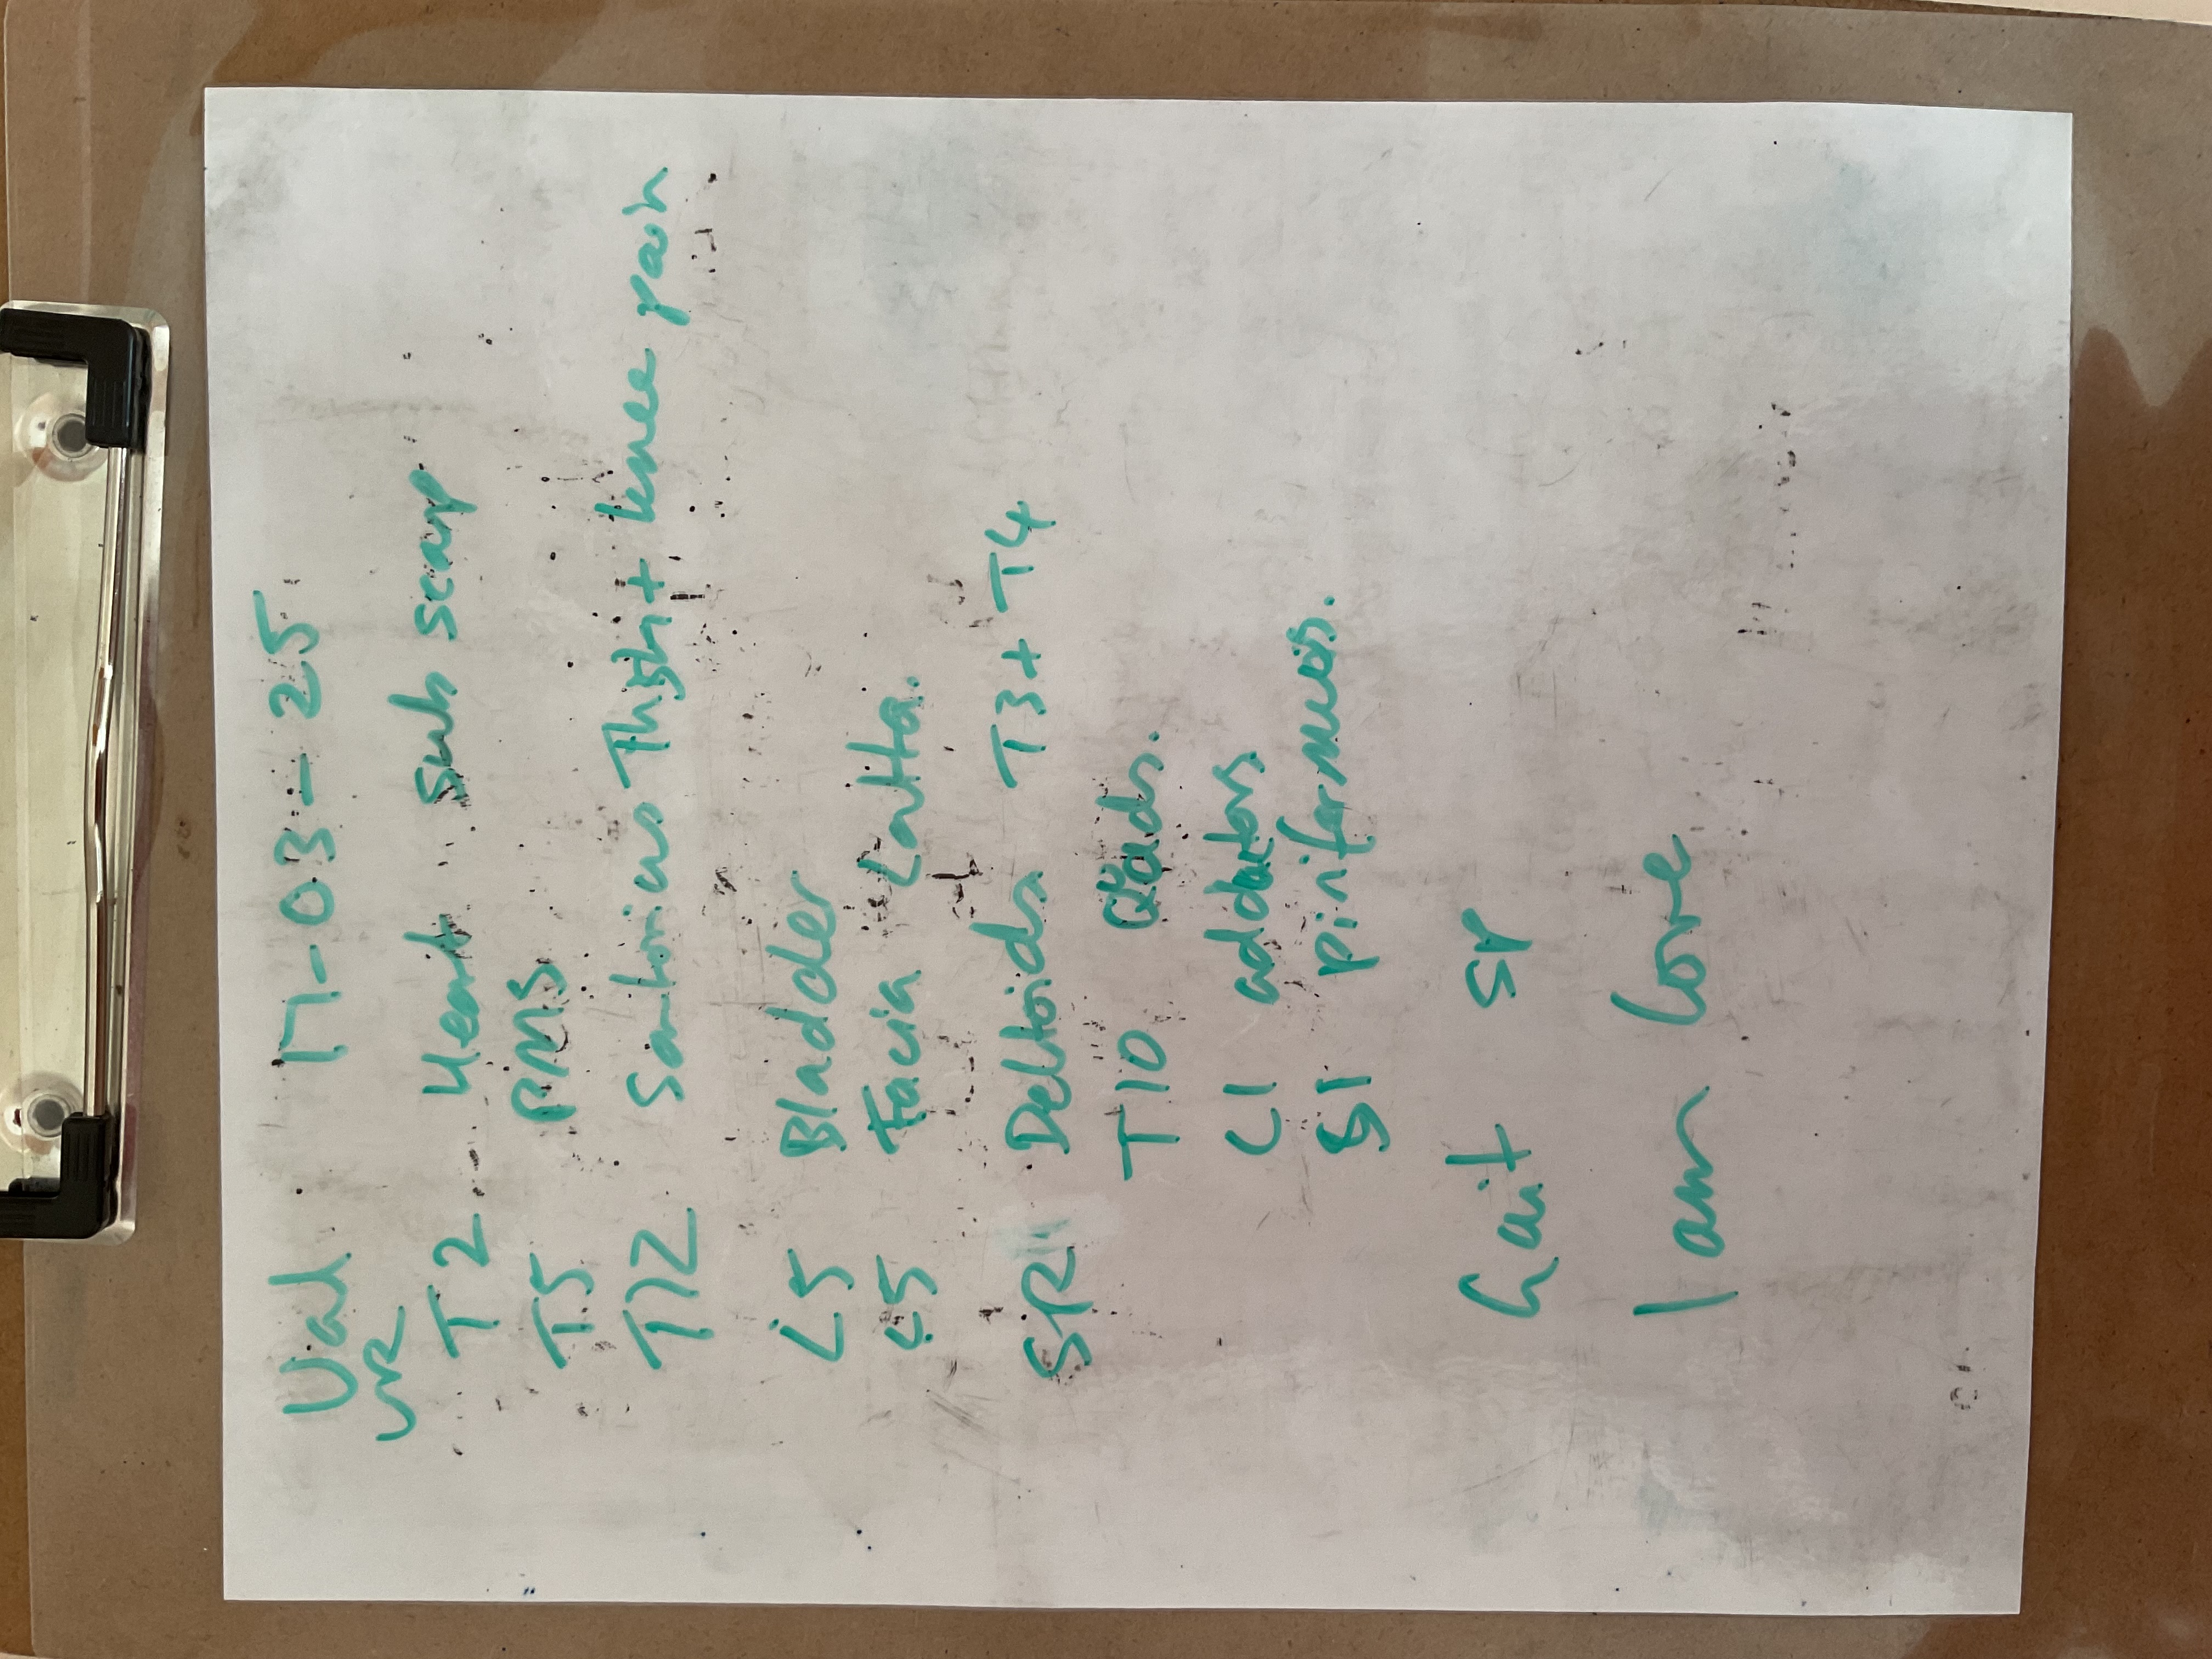 Val 17-03-25
VR
T2 Heart Sub scap
T5 PMS
T12 Sartorius Thigh + knee pain
L5 Bladder
L5 Facia Latta.
SP Deltoids T3 + T4
T10 Quads.
L1 adductors
S1 piriformus.
Gait SP
1 am Core